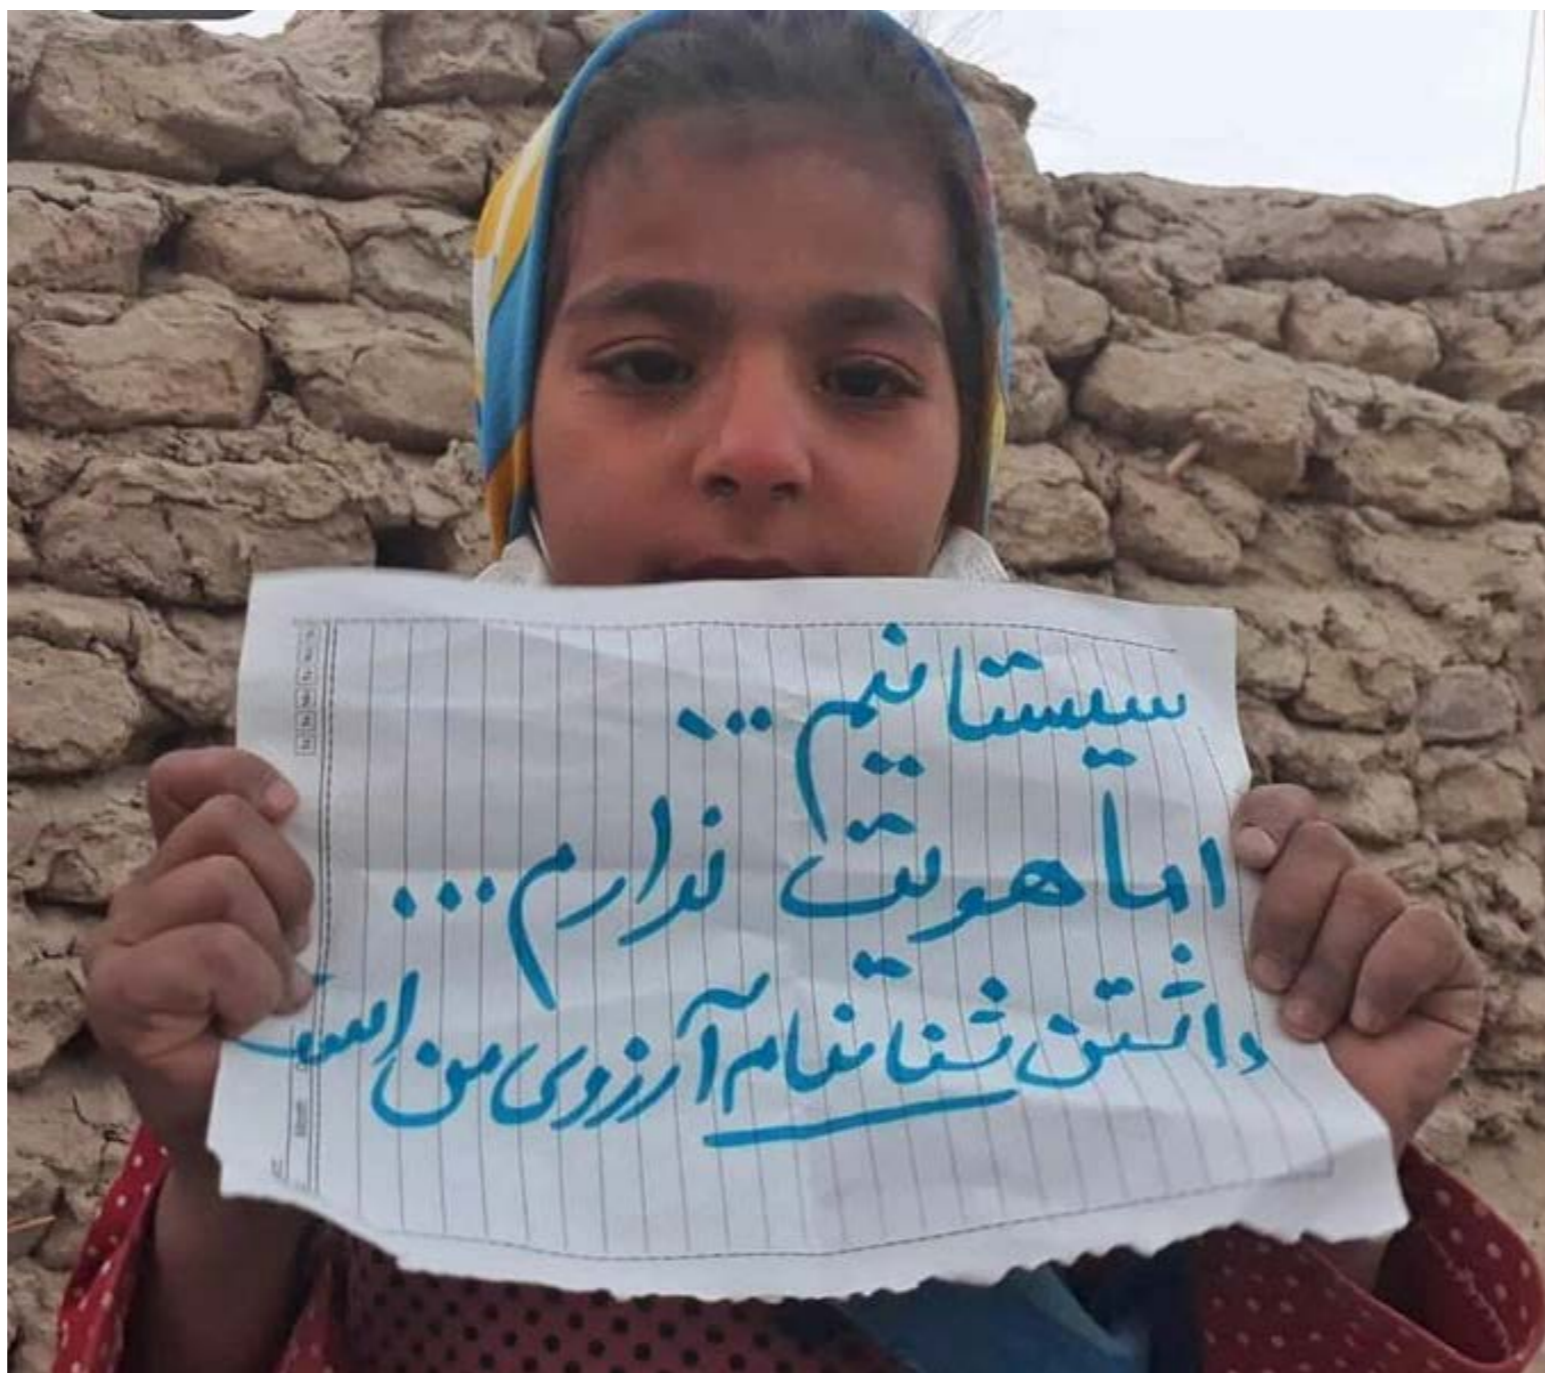 سیستانیم...
اما هویت ندارم...
داشتن شناسنام آرزوی من است